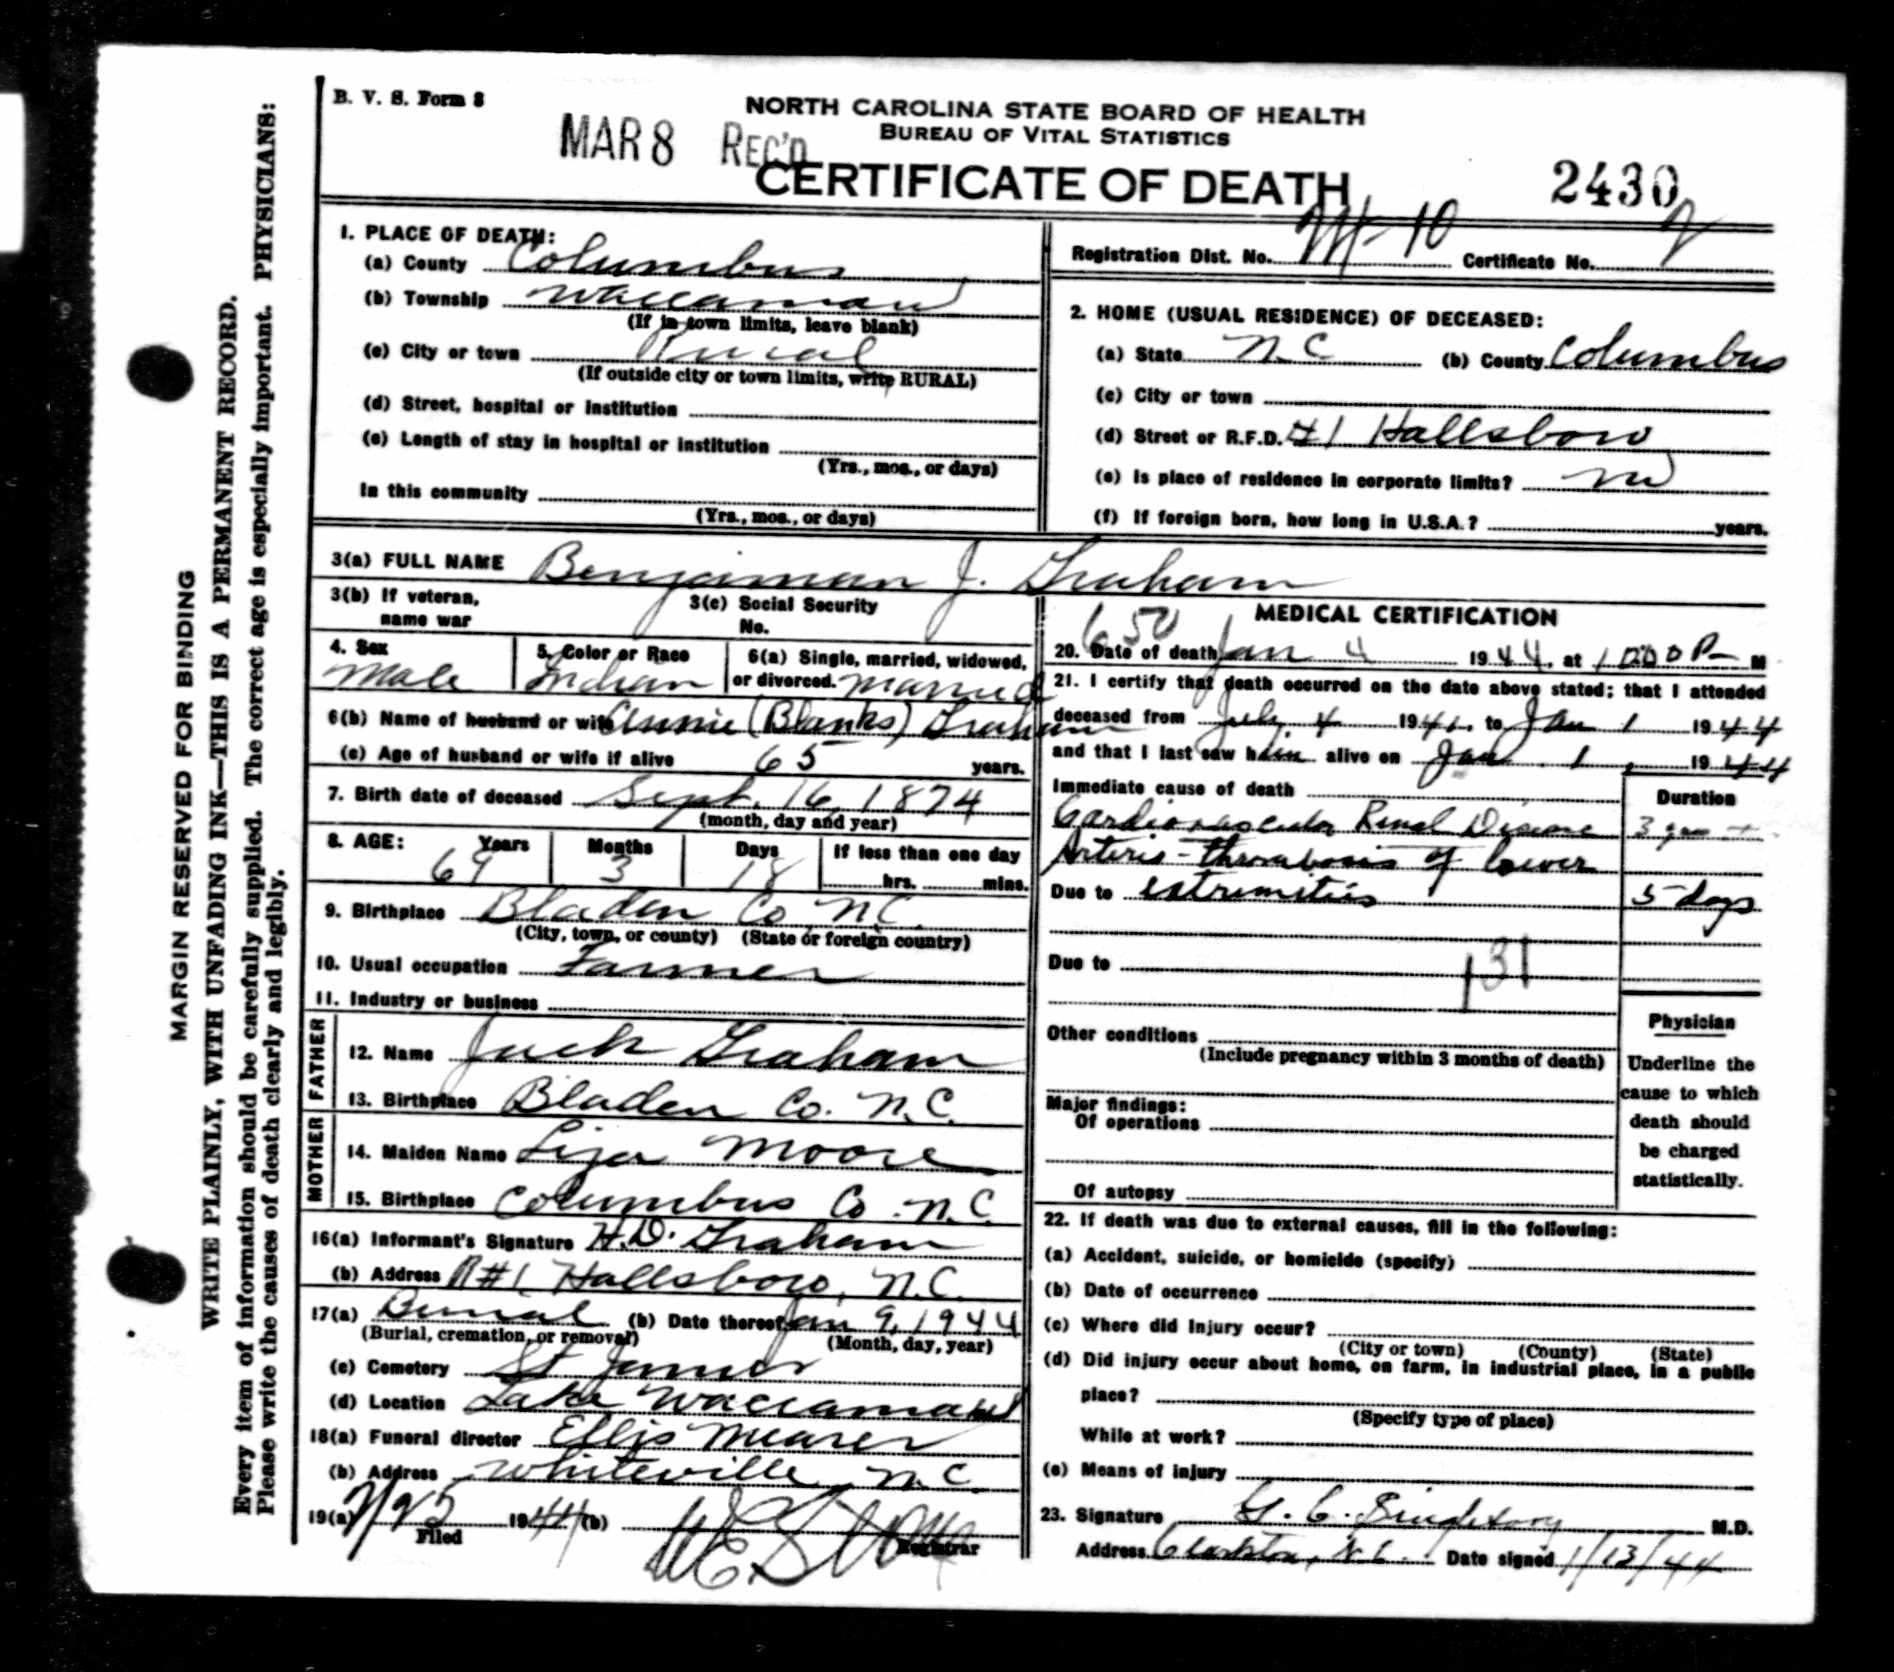 B. V. S. Form 8
NORTH CAROLINA STATE BOARD OF HEALTH
BUREAU OF VITAL STATISTICS
MAR 8 REC'D
CERTIFICATE OF DEATH
2430
MARGIN RESERVED FOR BINDING
WRITE PLAINLY, WITH UNFADING INK—THIS IS A PERMANENT RECORD.
Every item of information should be carefully supplied. The correct age is especially important. PHYSICIANS:
Please write the causes of death clearly and legibly.
1. PLACE OF DEATH:
(a) County Columbus
(b) Township Waccamaw
(If in town limits, leave blank)
(c) City or town Rural
(If outside city or town limits, write RURAL)
(d) Street, hospital or institution
(e) Length of stay in hospital or institution
(Yrs., mos., or days)
In this community
(Yrs., mos., or days)
Registration Dist. No. 24-10 Certificate No. 2
2. HOME (USUAL RESIDENCE) OF DECEASED:
(a) State N C (b) County Columbus
(c) City or town
(d) Street or R.F.D. #1 Hallsboro
(e) Is place of residence in corporate limits? no
(f) If foreign born, how long in U.S.A.? years.
3(a) FULL NAME Benjaman J. Graham
3(b) If veteran, name war
3(c) Social Security No.
4. Sex Male
5. Color or Race Indian
6(a) Single, married, widowed, or divorced. Married
6(b) Name of husband or wife Annie (Blanks) Graham
(c) Age of husband or wife if alive 65 years.
7. Birth date of deceased Sept. 16, 1874
(month, day and year)
8. AGE: Years 69 Months 3 Days 18 If less than one day
hrs. mins.
9. Birthplace Bladen Co N C
(City, town, or county) (State or foreign country)
10. Usual occupation Farmer
11. Industry or business
FATHER
12. Name Jack Graham
13. Birthplace Bladen Co. N. C.
MOTHER
14. Maiden Name Liza Moore
15. Birthplace Columbus Co. N. C.
16(a) Informant's Signature H. D. Graham
(b) Address R#1, Hallsboro, N. C.
17(a) Burial (b) Date thereof Jan 9, 1944
(Burial, cremation, or removal) (Month, day, year)
(c) Cemetery St James
(d) Location Lake Waccamaw
18(a) Funeral director Ellis Meares
(b) Address Whiteville, N. C.
19(a) 2/25 1944 (b)
Filed Registrar
MEDICAL CERTIFICATION
650
20. Date of death Jan 4 1944, at 1 00 P M
21. I certify that death occurred on the date above stated; that I attended
deceased from July 4 1941, to Jan 1 1944
and that I last saw him alive on Jan. 1, 1944
Immediate cause of death Duration
Cardiovascular Renal Disease 3 yrs +
Arterio-thrombosis of lower
Due to extremities 5 days
Due to 131
Other conditions
(Include pregnancy within 3 months of death)
Major findings:
Of operations
Of autopsy
Physician
Underline the
cause to which
death should
be charged
statistically.
22. If death was due to external causes, fill in the following:
(a) Accident, suicide, or homicide (specify)
(b) Date of occurrence
(c) Where did injury occur?
(City or town) (County) (State)
(d) Did injury occur about home, on farm, in industrial place, in a public
place?
(Specify type of place)
While at work?
(e) Means of injury
23. Signature G. C. Singletary M.D.
Address Clarkton, N. C. Date signed 1/13/44